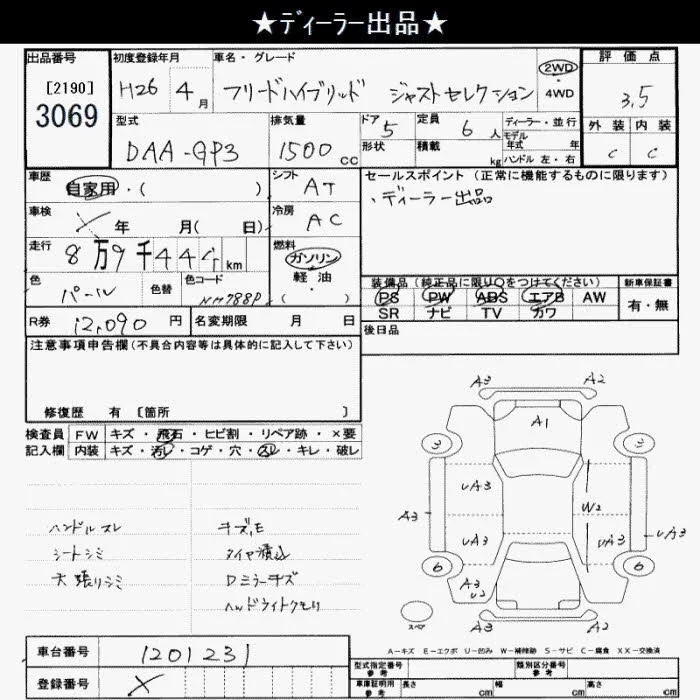 ★ディーラー出品★
出品番号 [2190] 3069
初度登録年月 H26 4月
車名・グレード フリードハイブリッド ジャストセレクション 2WD・4WD
評価点 3.5
外装 C 内装 C
型式 DAA-GP3
排気量 1500cc
ドア 5 形状
定員 6人 積載 kg
ディーラー・並行
モデル年式 年
ハンドル 左・右
車歴 自家用・( )
シフト AT
セールスポイント(正常に機能するものに限ります)
・ディーラー出品
車検 年 月( 日)
冷房 AC
走行 8万9千444km
燃料 ガソリン 軽油・( )
色 パール 色替 色コード NH788P
装備品(純正品に限り○をつけてください)
PS PW ABS エアB AW
SR ナビ TV カワ
新車保証書 有・無
R券 12,090円 名変期限 月 日
後日品
注意事項申告欄(不具合内容等は具体的に記入して下さい)
修復歴 有 〔箇所 〕
検査員記入欄 FW キズ・飛石・ヒビ割・リペア跡・×要
内装 キズ・汚レ・コゲ・穴・スレ・キレ・破レ
ハンドルスレ キズ,E
シートシミ タイヤ積込
天張りシミ Dミラーキズ
ヘッドライトクモリ
A3 A2
A1
3 3
UA3
A3 W2 UA3
UA3 UA3
6 6
A3 U2
スペア
A3 A2
A-キズ E-エクボ U-凹み W-補修跡 S-サビ C-腐食 XX-交換済
車台番号 1201231
登録番号 X
型式指定番号 参考 類別区分番号 参考
車庫証明用 参考 長さ cm 幅 cm 高さ cm